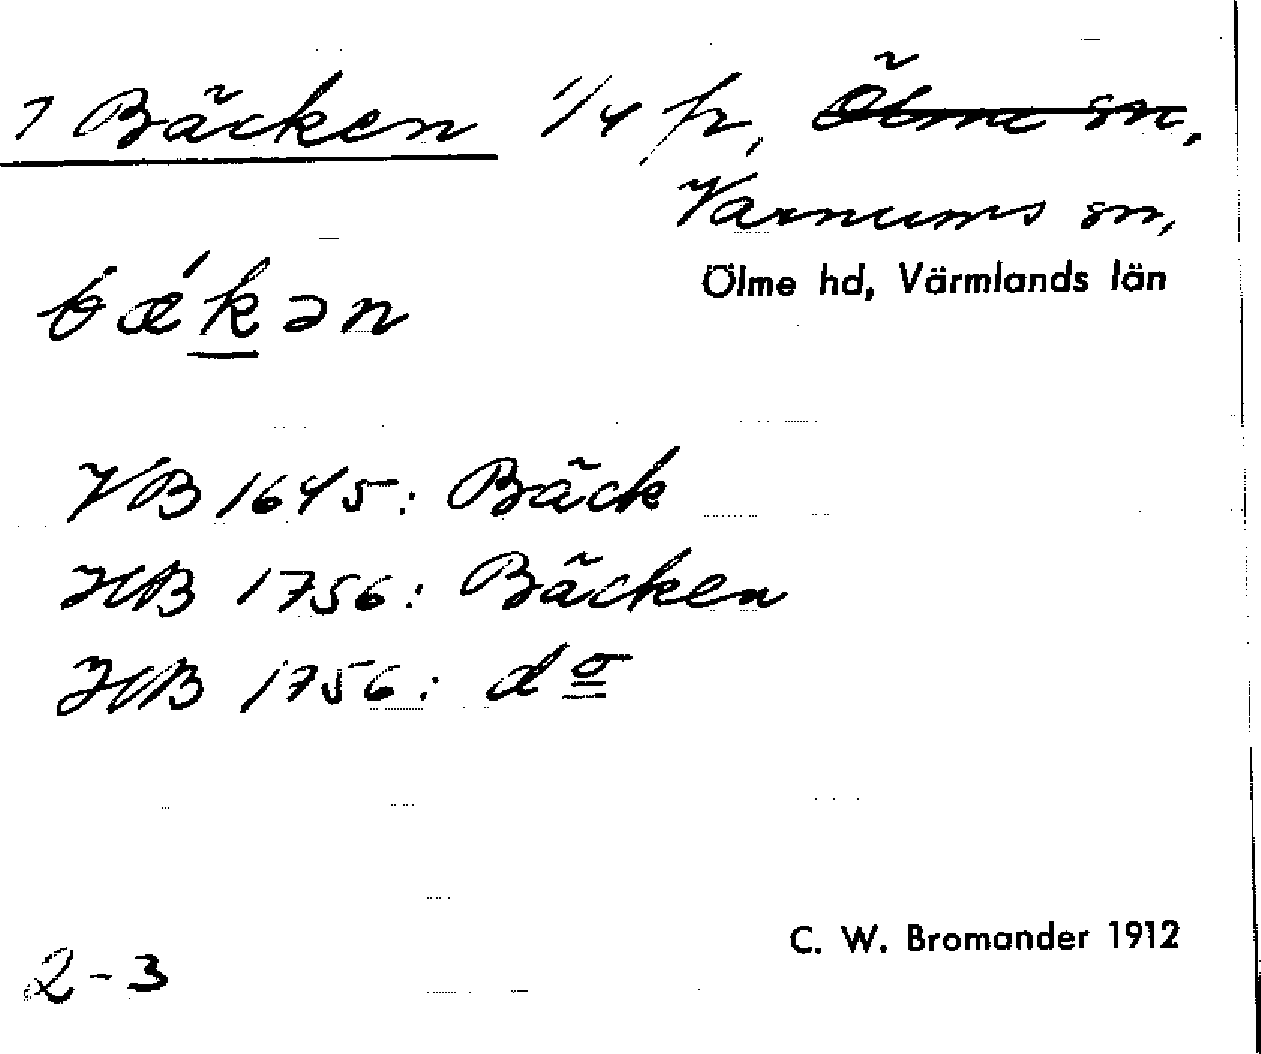 1 Bäcken 1/4 fr, Ölme sn,
Varnums sn,
Ölme hd, Värmlands län
bǽkən
VB 1645: Bäck
HB 1756: Bäcken
HB 1756: do
C. W. Bromander 1912
2-3